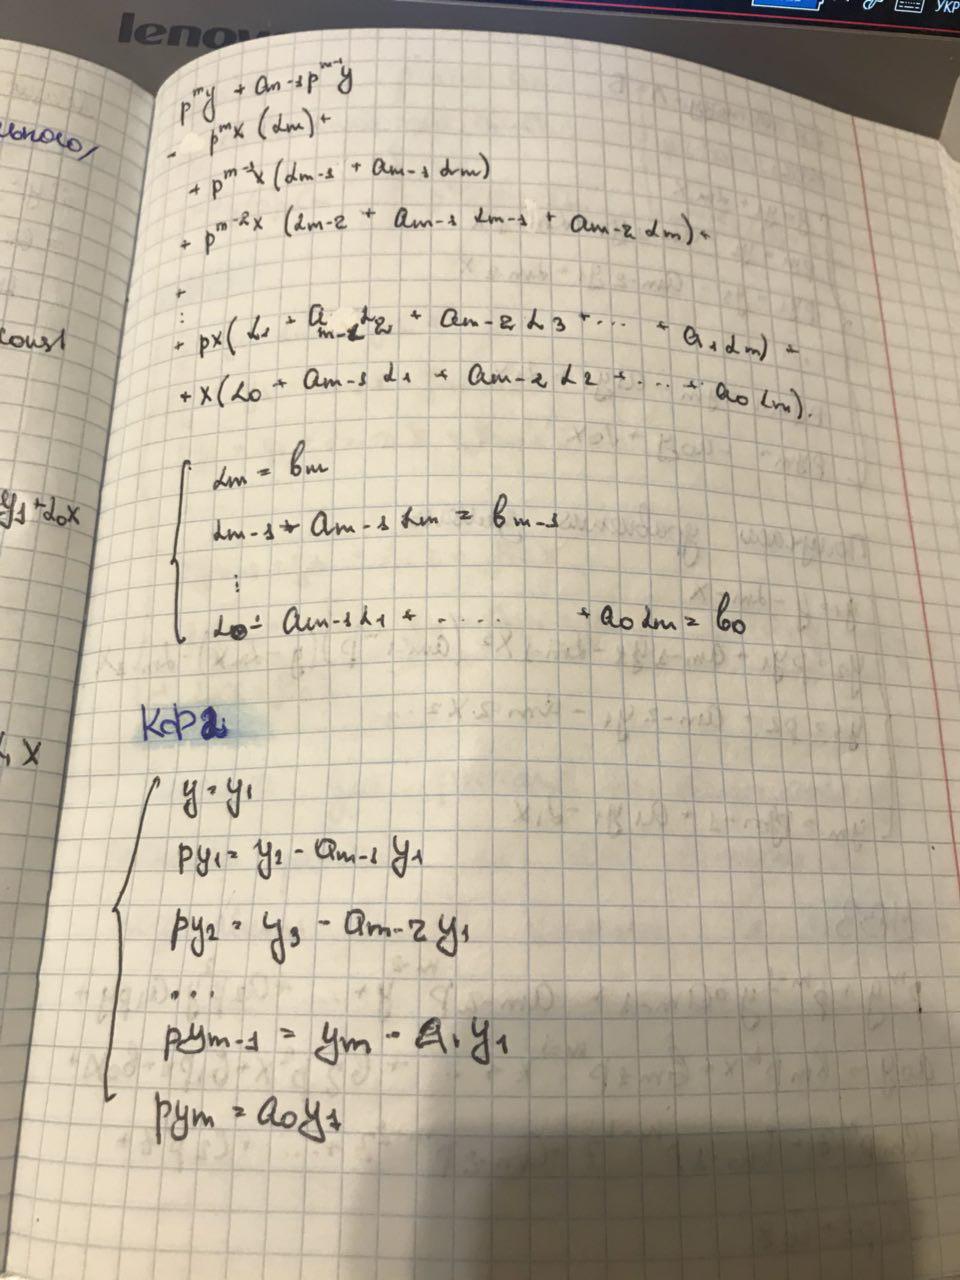 lenovo
УКР
p^m y + a_{m-1} p^{m-1} y
- p^m x (α_m) +
+ p^{m-1} x (α_{m-1} + a_{m-1} α_m)
+ p^{m-2} x (α_{m-2} + a_{m-1} α_{m-1} + a_{m-2} α_m) +
+
⋮
+ px (α_1 + a_{m-1} α_2 + a_{m-2} α_3 + ... + a_1 α_m) +
+ x (α_0 + a_{m-1} α_1 + a_{m-2} α_2 + ... + a_0 α_m).
α_m = b_m
α_{m-1} + a_{m-1} α_m = b_{m-1}
⋮
α_0 + a_{m-1} α_1 + ..... + a_0 α_m = b_0
КФ2
y = y_1
py_1 = y_2 - a_{m-1} y_1
py_2 = y_3 - a_{m-2} y_1
...
py_{m-1} = y_m - a_1 y_1
py_m = a_0 y_1
ьного,
const
y_1 + α_0 x
x